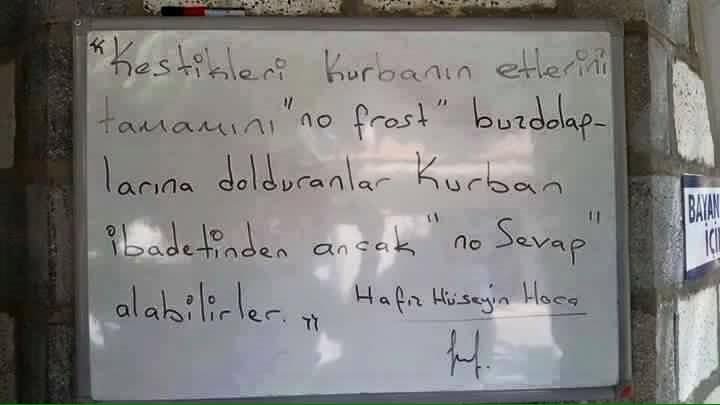 "Kestikleri Kurbanın etlerini
tamamını "no frost" buzdolap-
larına dolduranlar Kurban
ibadetinden ancak "no Sevap"
alabilirler."
Hafız Hüseyin Hoca
BAYAN
İÇİ